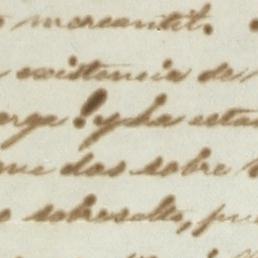 mercantil.
existencia de
arga! y ha esta
que dos sobre
sobresalto, pu